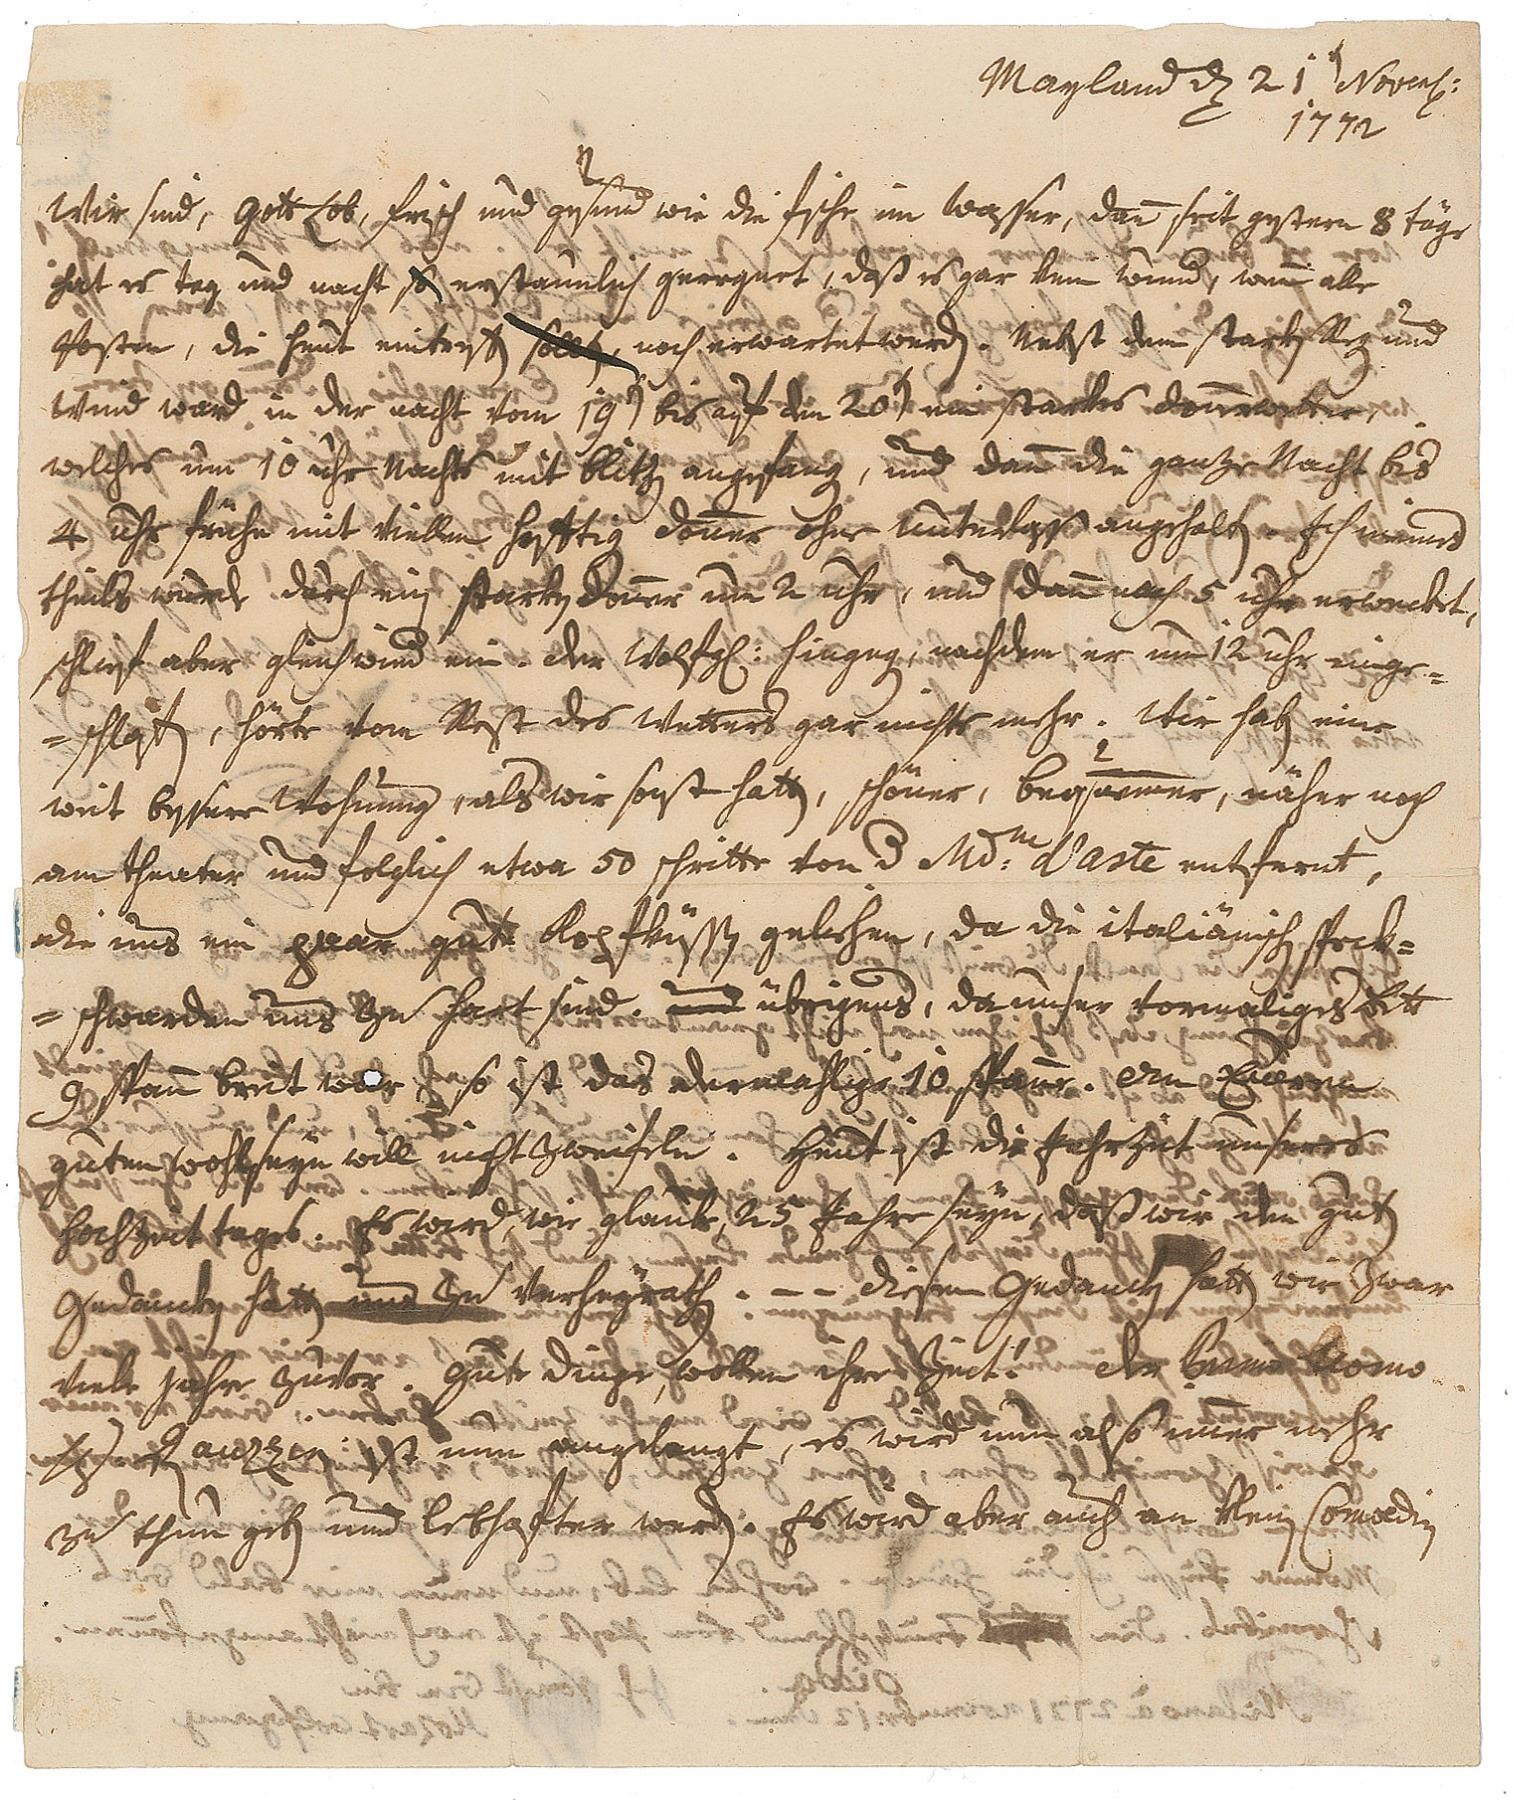 Mayland den 21t Novemb:
1772
Wir sind, Gott Lob, frisch und gesund wie die fische im Wasser, dann seit gestern 8 täge
hat es tag und nacht so erstaunlich geregnet, daß es gar kein wund, wenn alle
Posten, die heut eintreffen sollen, noch erwartet werden. Nebst dem starken Reg und
Wind ward in der nacht vom 19t bis auf den 20t ein starkes donnerwetter,
welches um 10 uhr Nachts mit blitzen angefang, und dann die gantze Nacht bis
4 uhr frühe mit viellem hefftig donner ohne unterlass angehalten. Ich meines
theils wurde durch ein starken Donner um 2 uhr, und dann nach 5 uhr erweckt,
schlief aber geschwind ein. der Wolfg: hingeg, nachdem er um 12 uhr einge-
-schlafen, hörte vom Rest des Wetters gar nichts mehr. Wir haben eine
weit bessere Wohnung, als wir sonst hatten, schöner, bequemer, näher noch
am theater und folglich etwa 50 schritte von d Mdm: d'aste entfernt,
die uns ein paar gute Kopfküssen geliehen, da die italiänischen speck-
-schwarden uns zu hart sind. und übrigens, da unser vormaliges bett
9 spann breit war so ist das dermahlige 10 spanne. An Euerem
guten wohlseyn will nicht zweifeln. Heut ist die Jahrzeit unseres
hochzeittages. Es werd, wie glaube, 25 Jahre seyn, daß wir den guten
Gedancken hatten uns zu verheyrathen. -- diesen Gedancken hatten wir zwar
viele Jahre zuvor. Gute dinge, wollen ihre Zeit! der Primo Uomo
ist nun angelangt, es wird nun also immer mehr
zu thun geben und lebhafter werden. Es wird aber auch an klein Comoedien